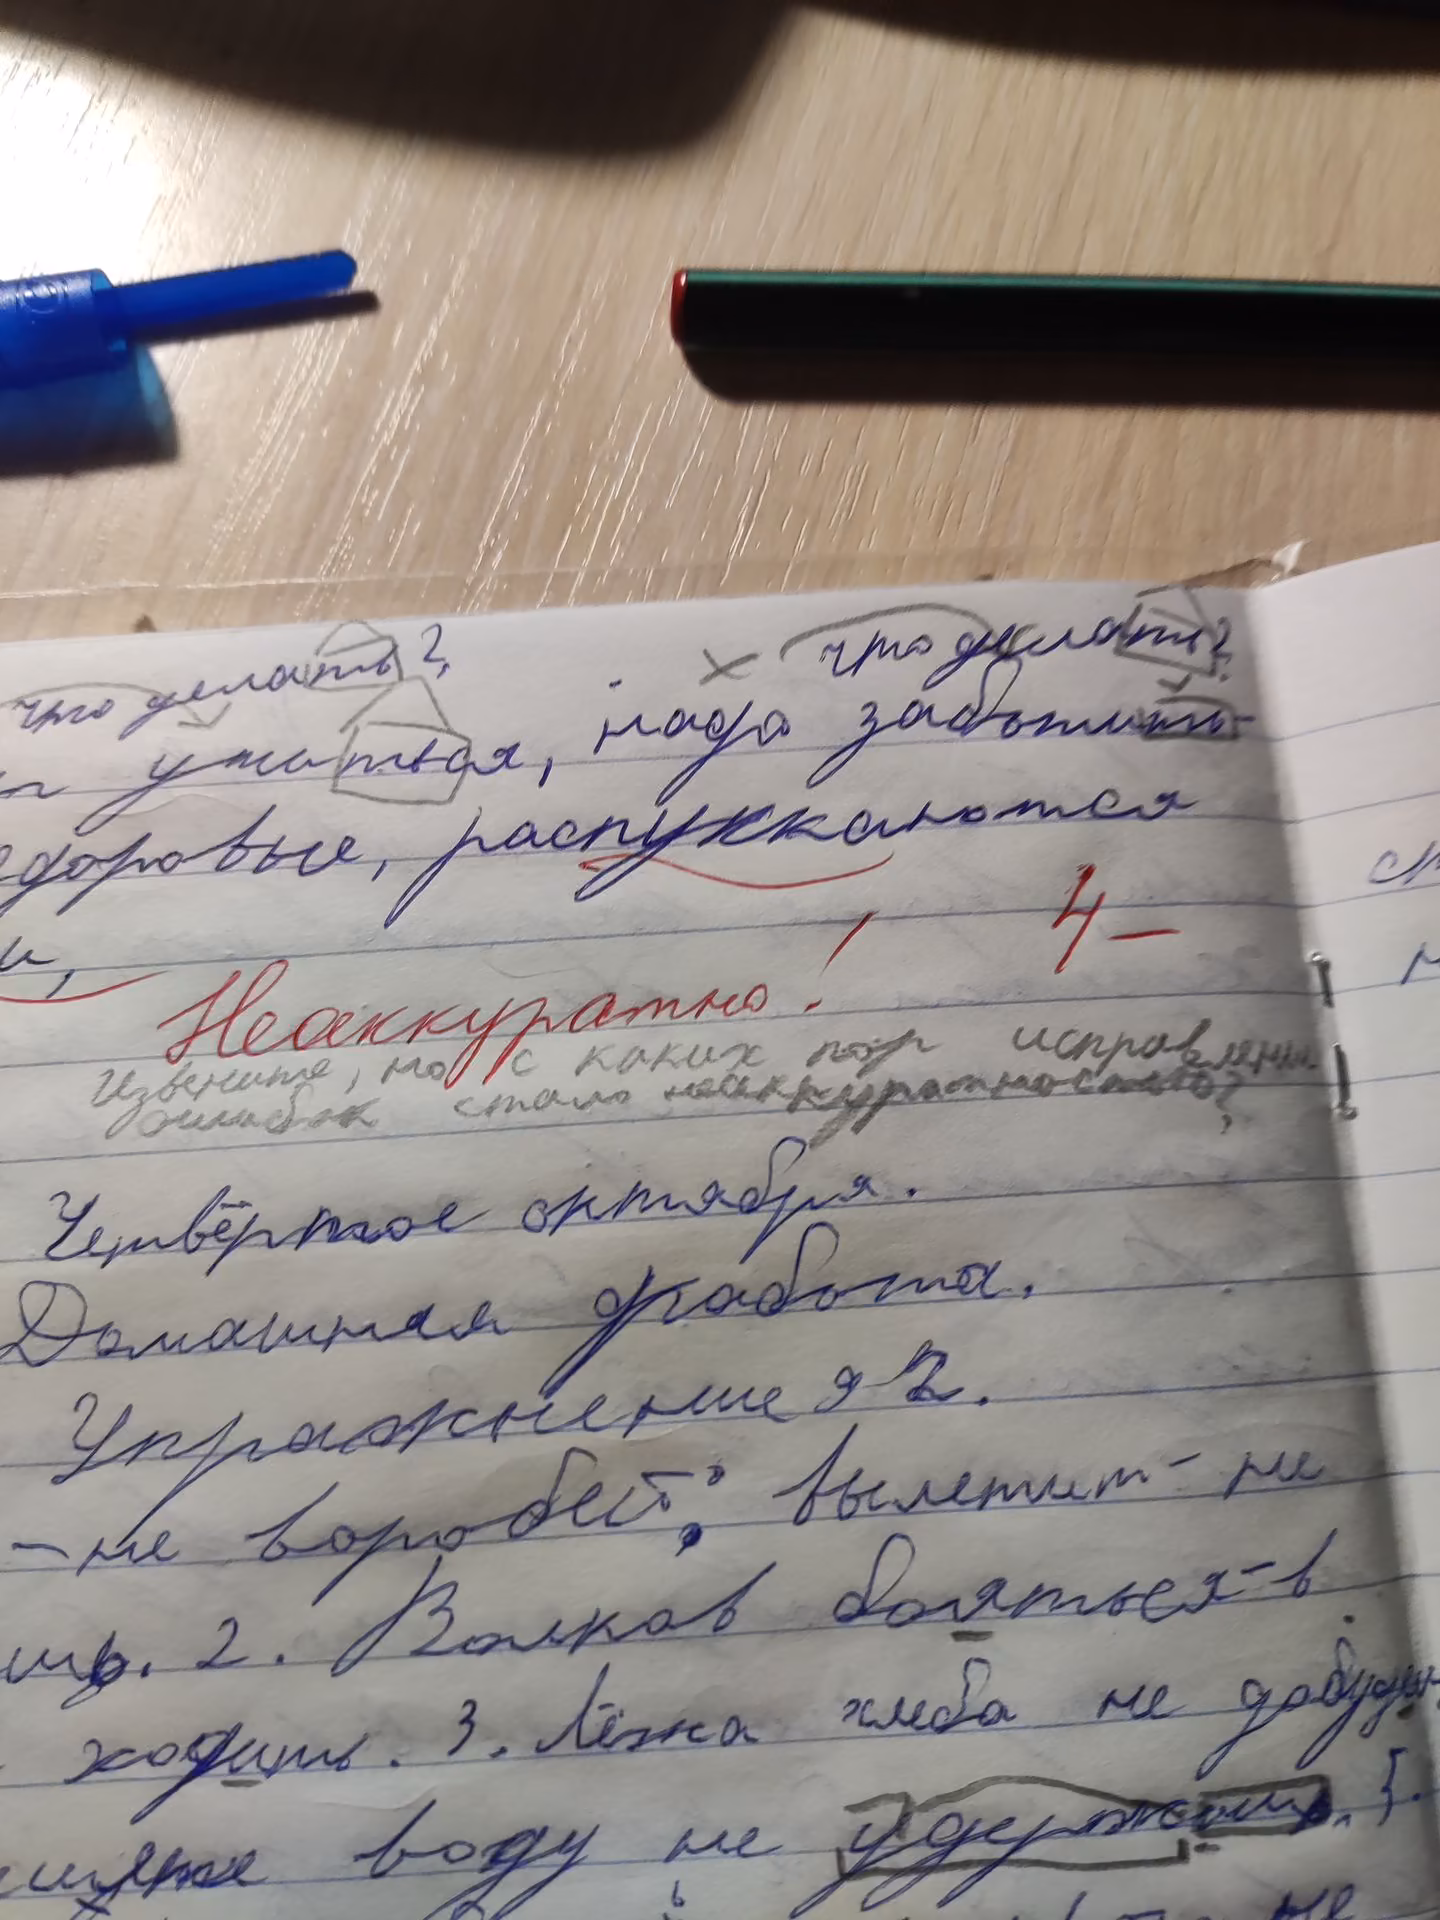 что делать?, × что делать?
ужиться, надо заботить-
доровье, распускаются
и,
4-
Неаккуратно!
Извените, но с каких пор исправления
ошибок стало неаккуратностью?
Четвёртое октября.
Домашняя работа.
Упражнение 92.
- не воробей; вылетит - не
2. Волков бояться - в
ходить. 3. Лёжа хлеба не добудеш
воду не удержишь. 5.
не